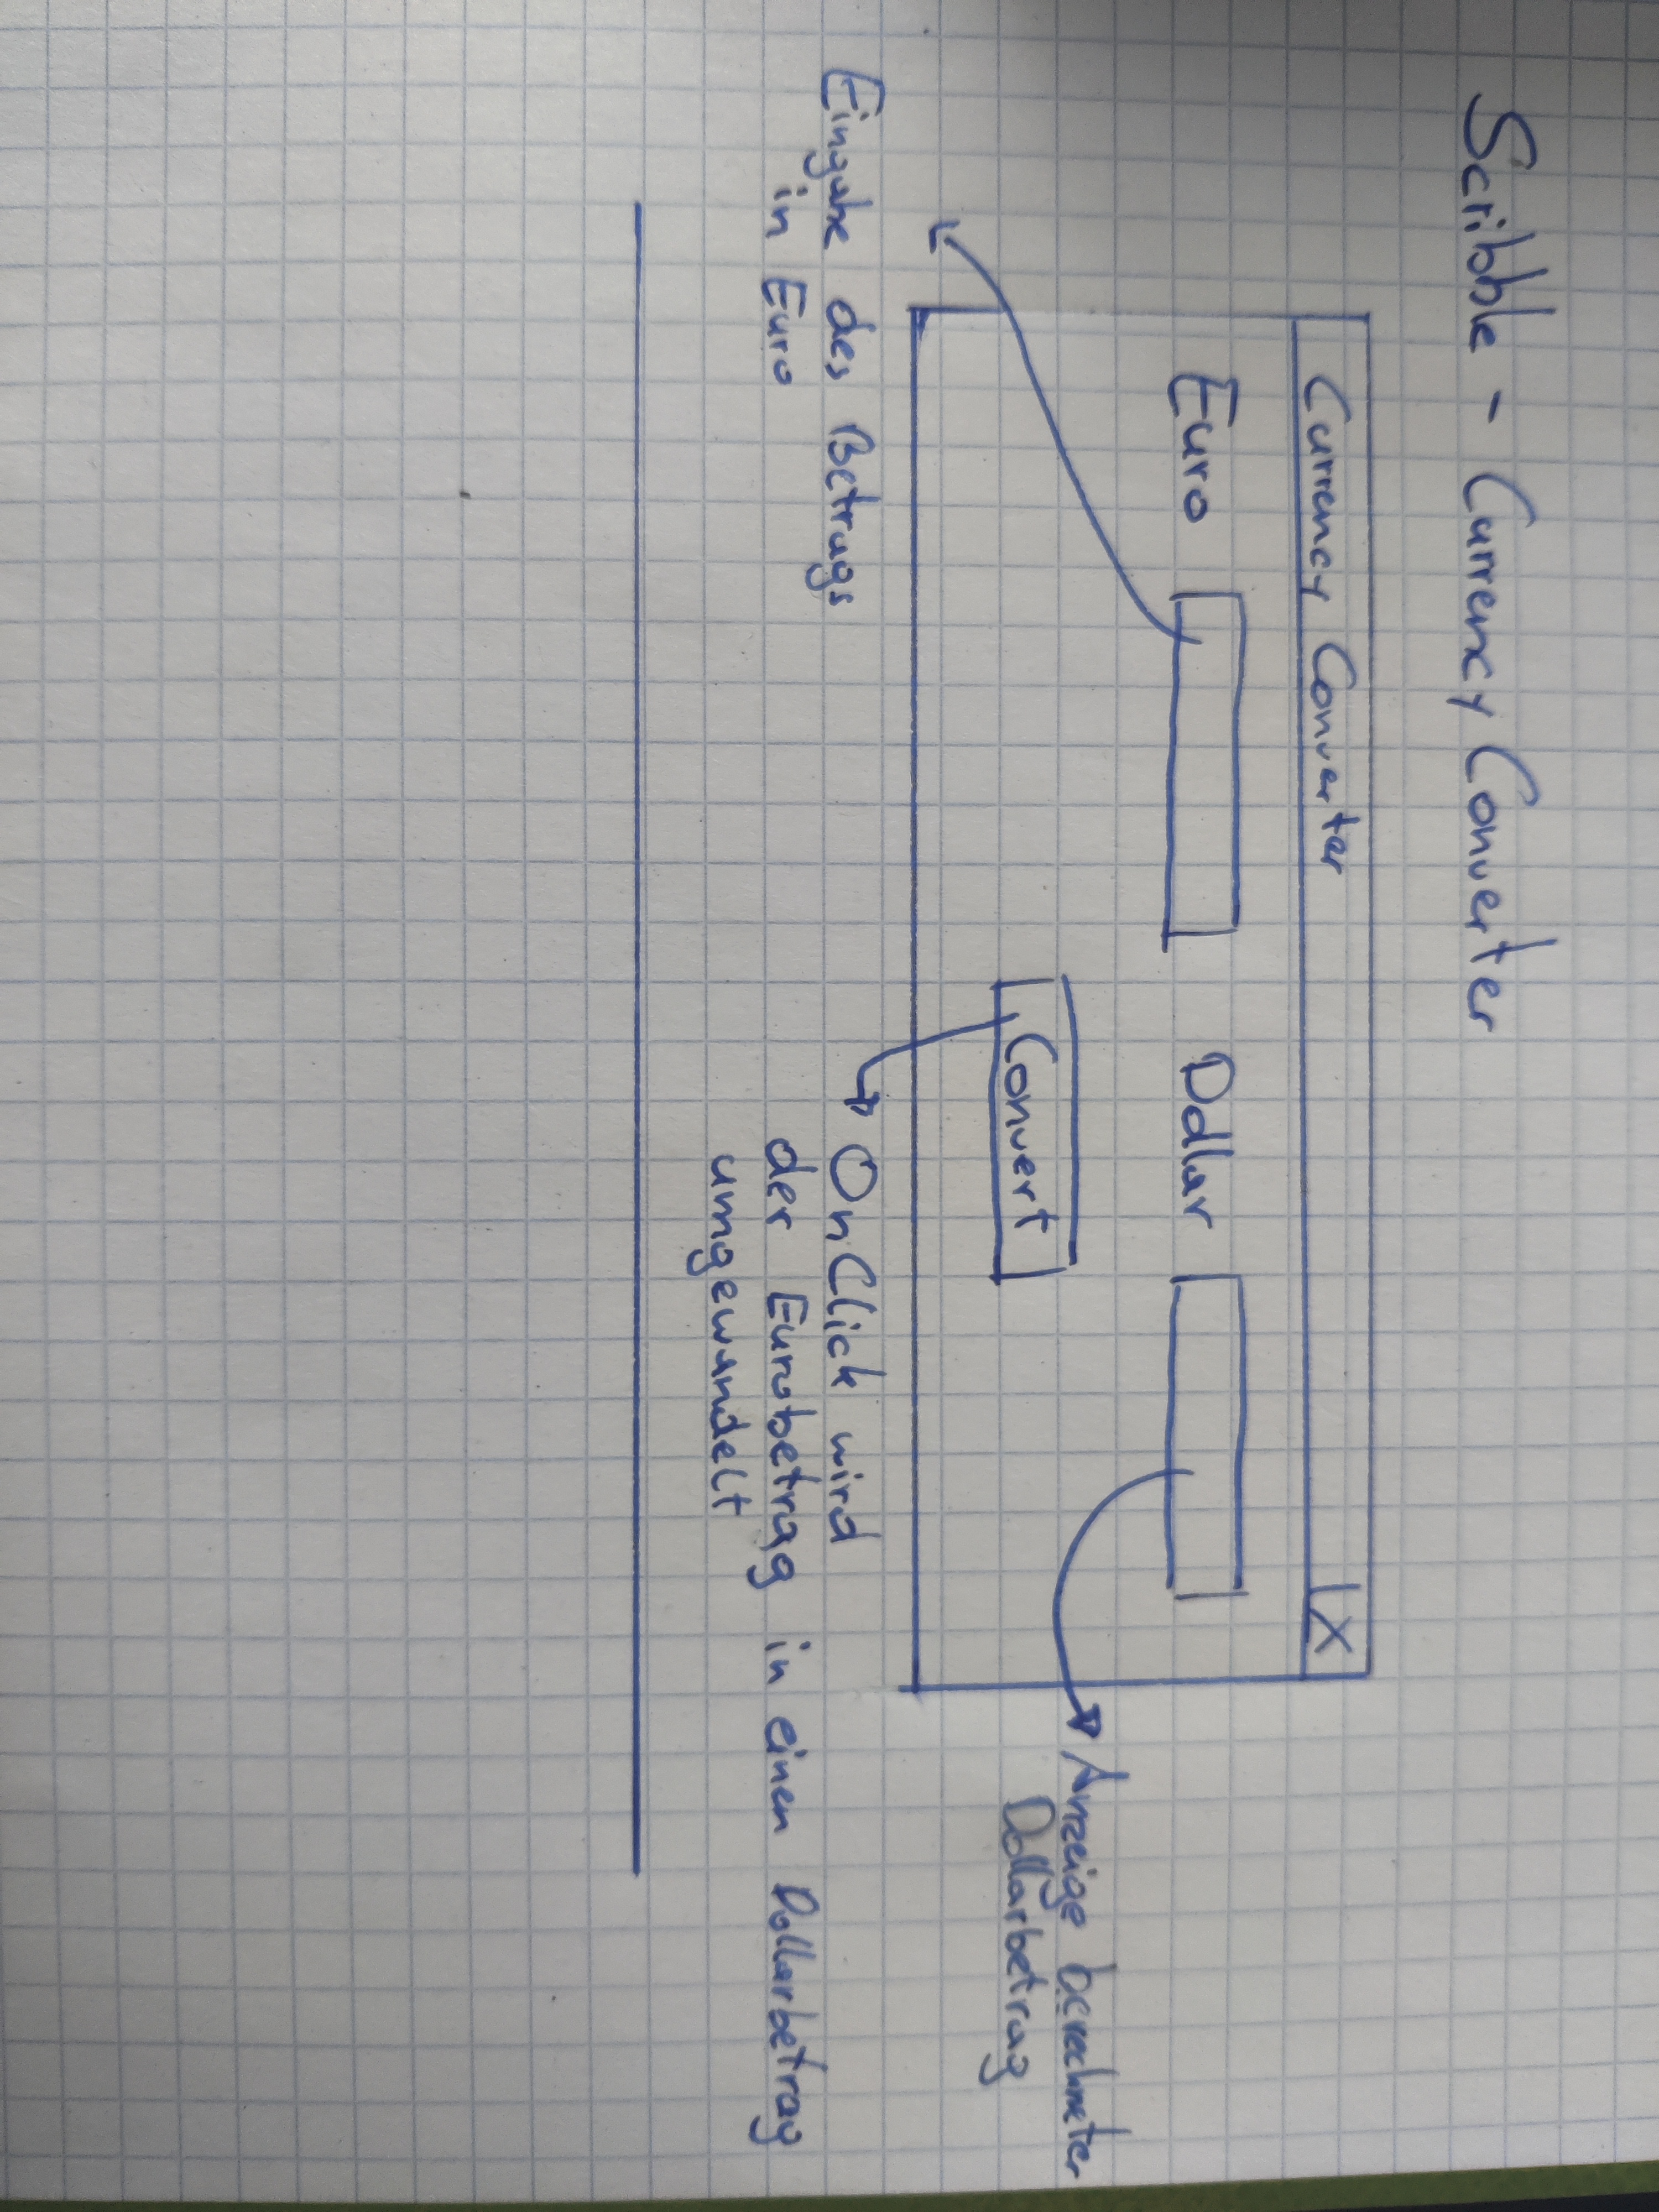 Scribble - Currency Converter
Currency Converter X
Euro Dollar
Convert
Anzeige berechneter
Dollarbetrag
Eingabe des Betrags
in Euro
OnClick wird
der Eurobetrag in einen Dollarbetrag
umgewandelt